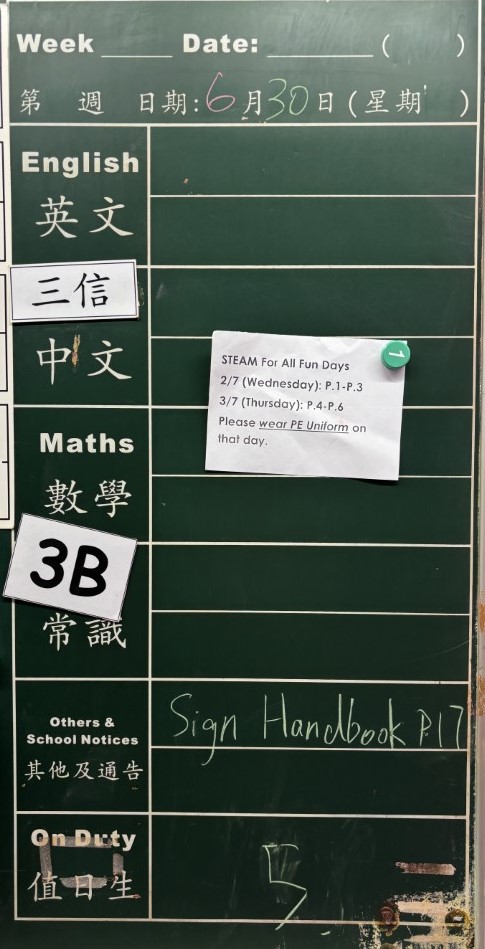 Week ____ Date: ________ (      )
第 週 日期: 6月30日 (星期 )
English
英文
三信
中文
STEAM For All Fun Days
2/7 (Wednesday): P.1-P.3
3/7 (Thursday): P.4-P.6
Please wear PE Uniform on
that day.
1
Maths
數學
3B
常識
Others &
School Notices
其他及通告
Sign Handbook P.17
On Duty
值日生
5